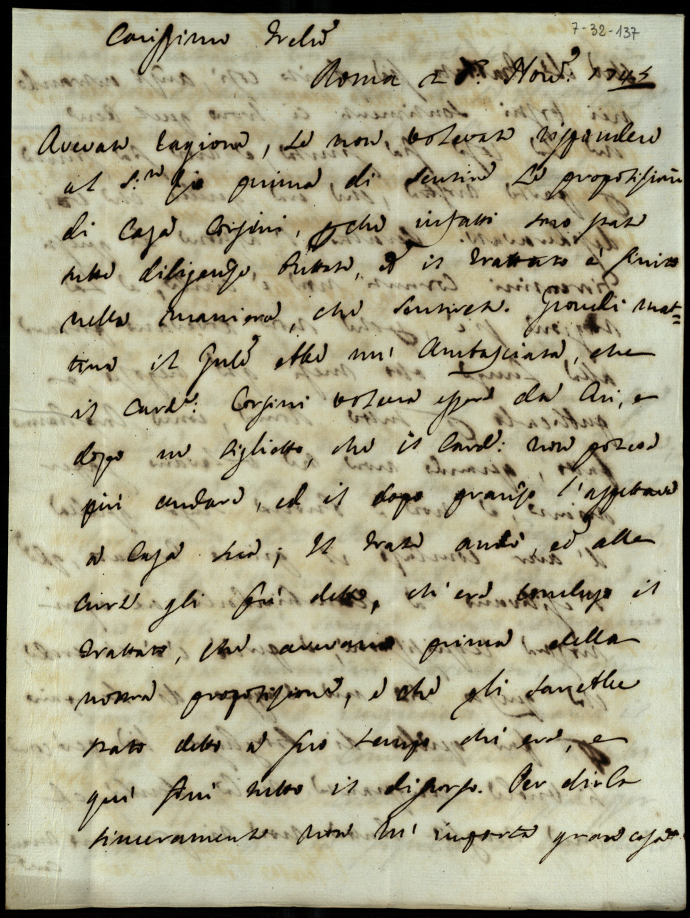 7-32-137
Carissimo Frello
Roma 2 Nov.e 1745
Avevate ragione, se non volevate rispondere
al S.re prima di sentire le proposizioni
di Casa Corsini, che infatti sono state
tutte diligenze buttate, ed il trattato è finito
nella maniera, che sentirete. Giovedì mat=
tina il ebbe un' Ambasciata, che
il Card.e Corsini voleva essere da lui, e
dopo un biglietto, che il Card: non poteva
più andare, ed il dopo pranzo l'aspettava
a Casa sua, il Frate andò ed alle
curte gli fu detto, ch'era concluso il
trattato, che avevano prima della
nostra proposizione, e che gli sarebbe
stato detto a suo tempo chi era, e
qui finì tutto il discorso. Per dirla
sinceramente non m' importa gran cosa